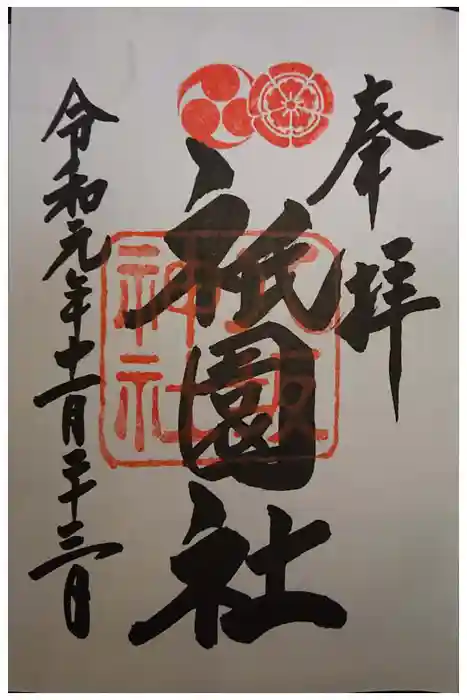 奉拝
祇園社
八坂
神社
令和元年十一月二十三日